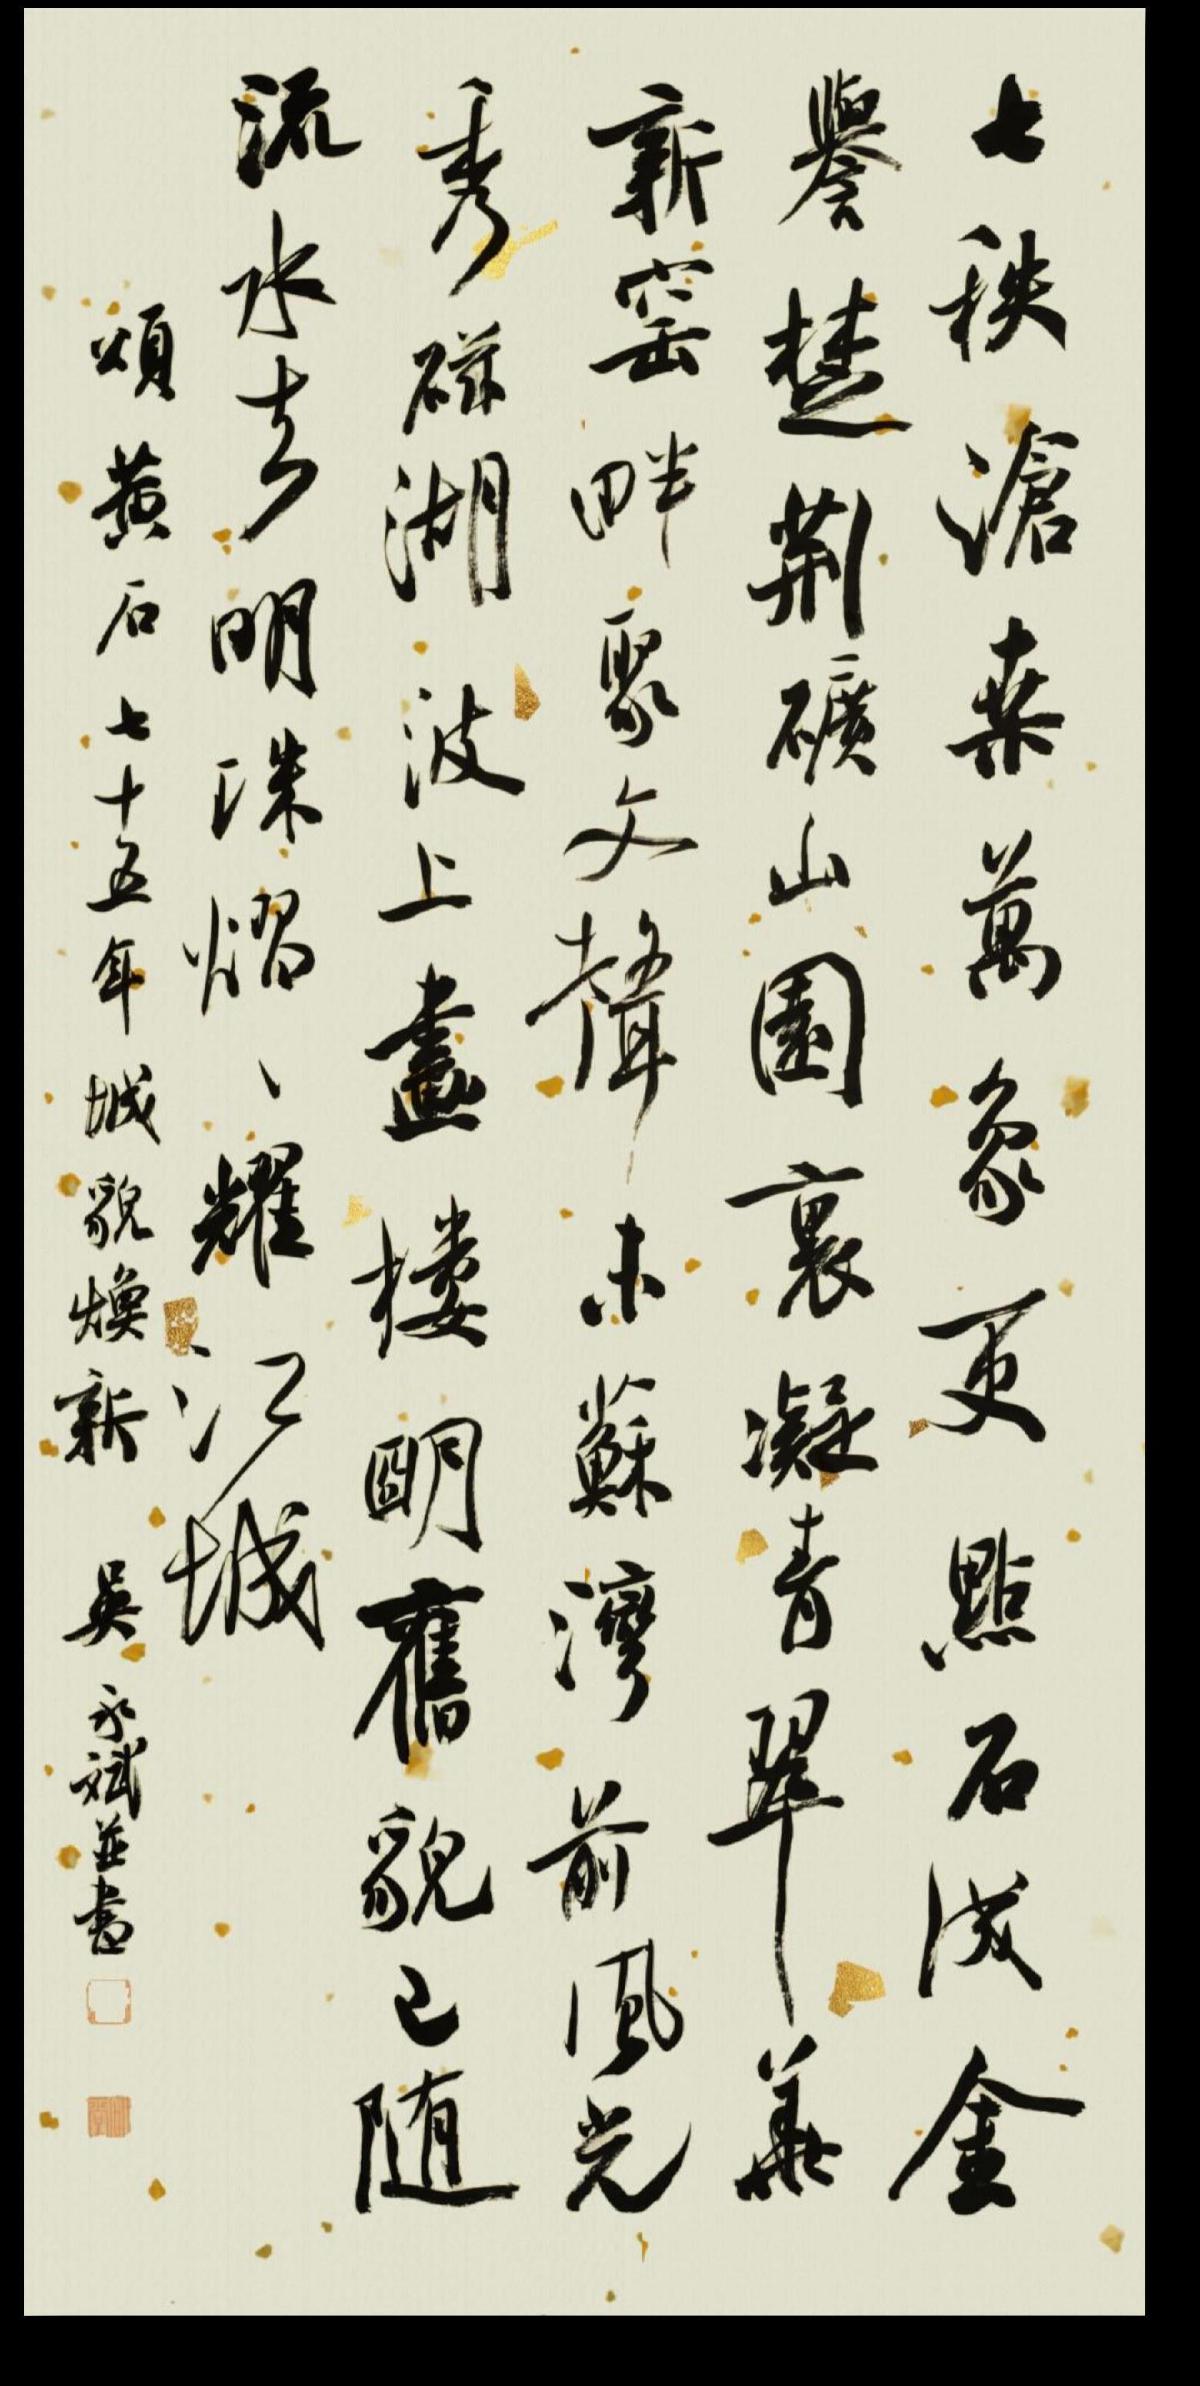 七秩滄桑萬象更點石成金
譽楚荆礦山園裏凝青翠華
新窑畔聚文聲東蘇灣前風光
秀磁湖波上畫樓明舊貌已随
流水去明珠熠、耀江城
頌黄石七十五年城貌焕新 吴永斌並書